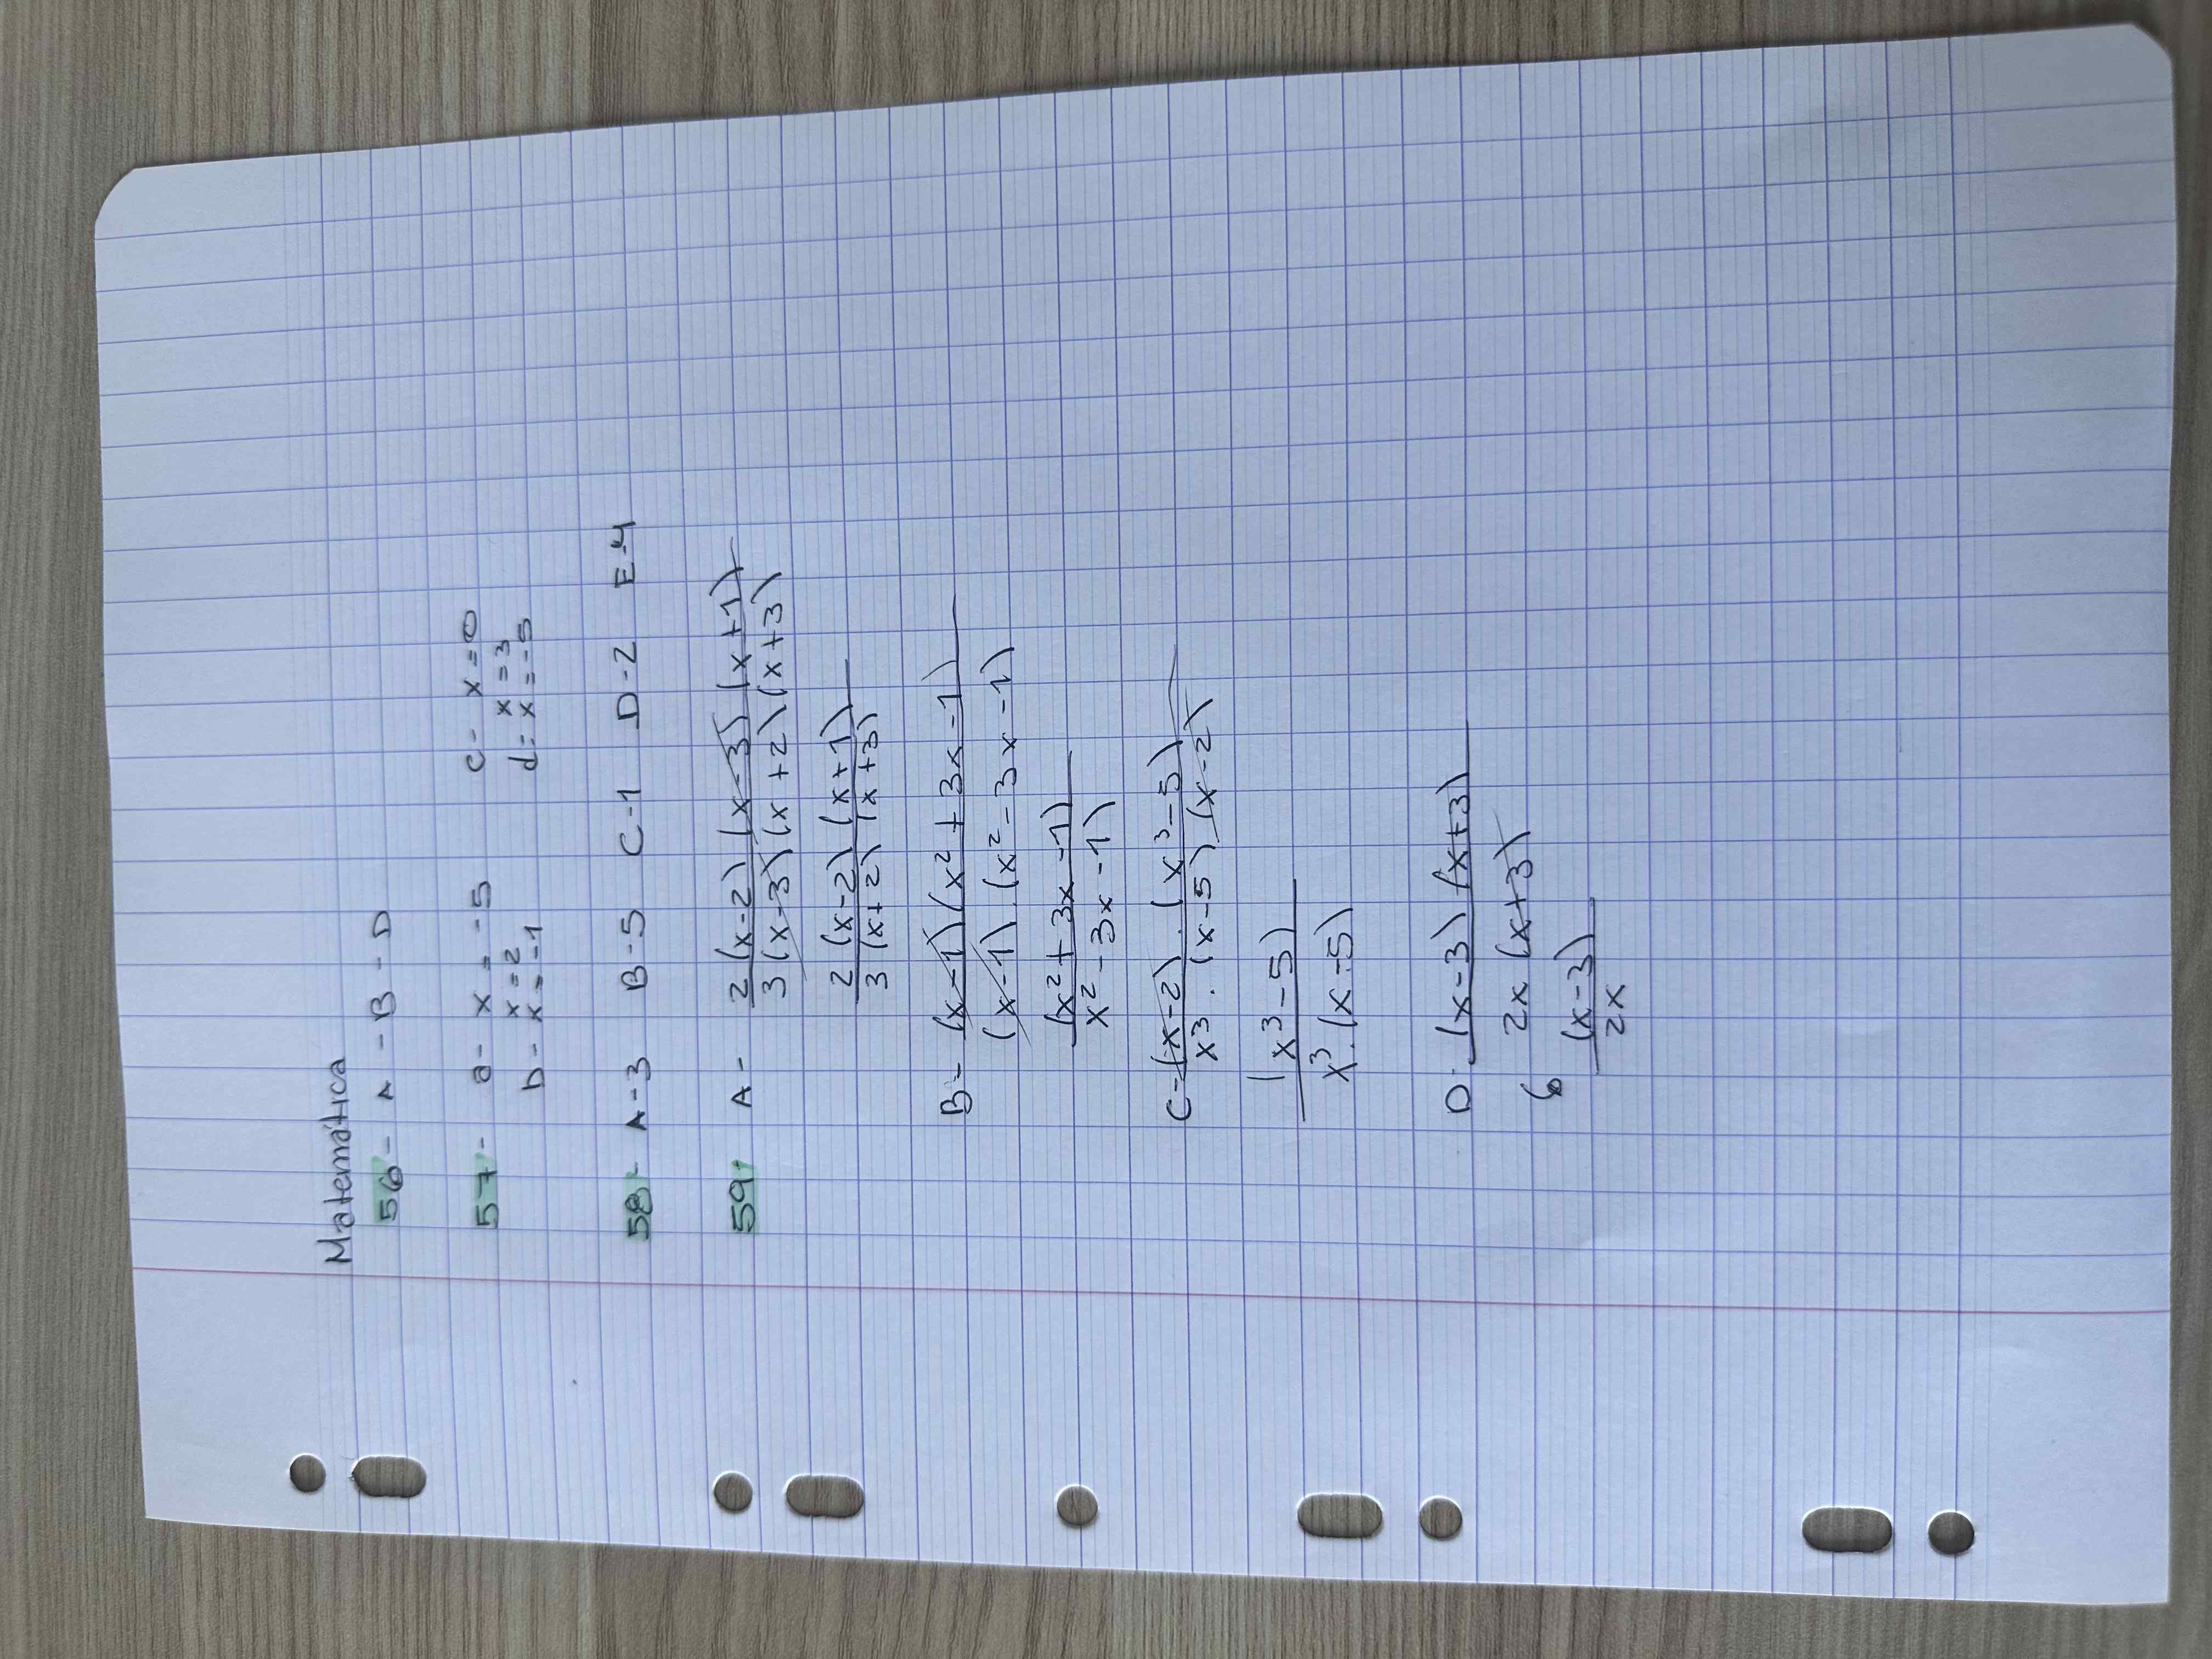 Matemática
56 - A - B - D
57 - a - x = -5 c - x = 0
x = 2 x = 3
b - x = -1 d = x = -5
58 - A - 3 B - 5 C - 1 D - 2 E - 4
59, A - 2 (x-2) (x-3) (x+1)
3 (x-3) (x+2) (x+3)
2 (x-2) (x+1)
3 (x+2) (x+3)
B - (x-1) (x² + 3x - 1)
(x-1) . (x² - 3x - 1)
(x² + 3x - 1)
x² - 3x - 1)
C - (x-2) . (x³ - 5)
x³ . (x-5) (x-2)
(x³ - 5)
x³ . (x-5)
D . (x-3) (x+3)
2x (x+3)
(x-3)
2x